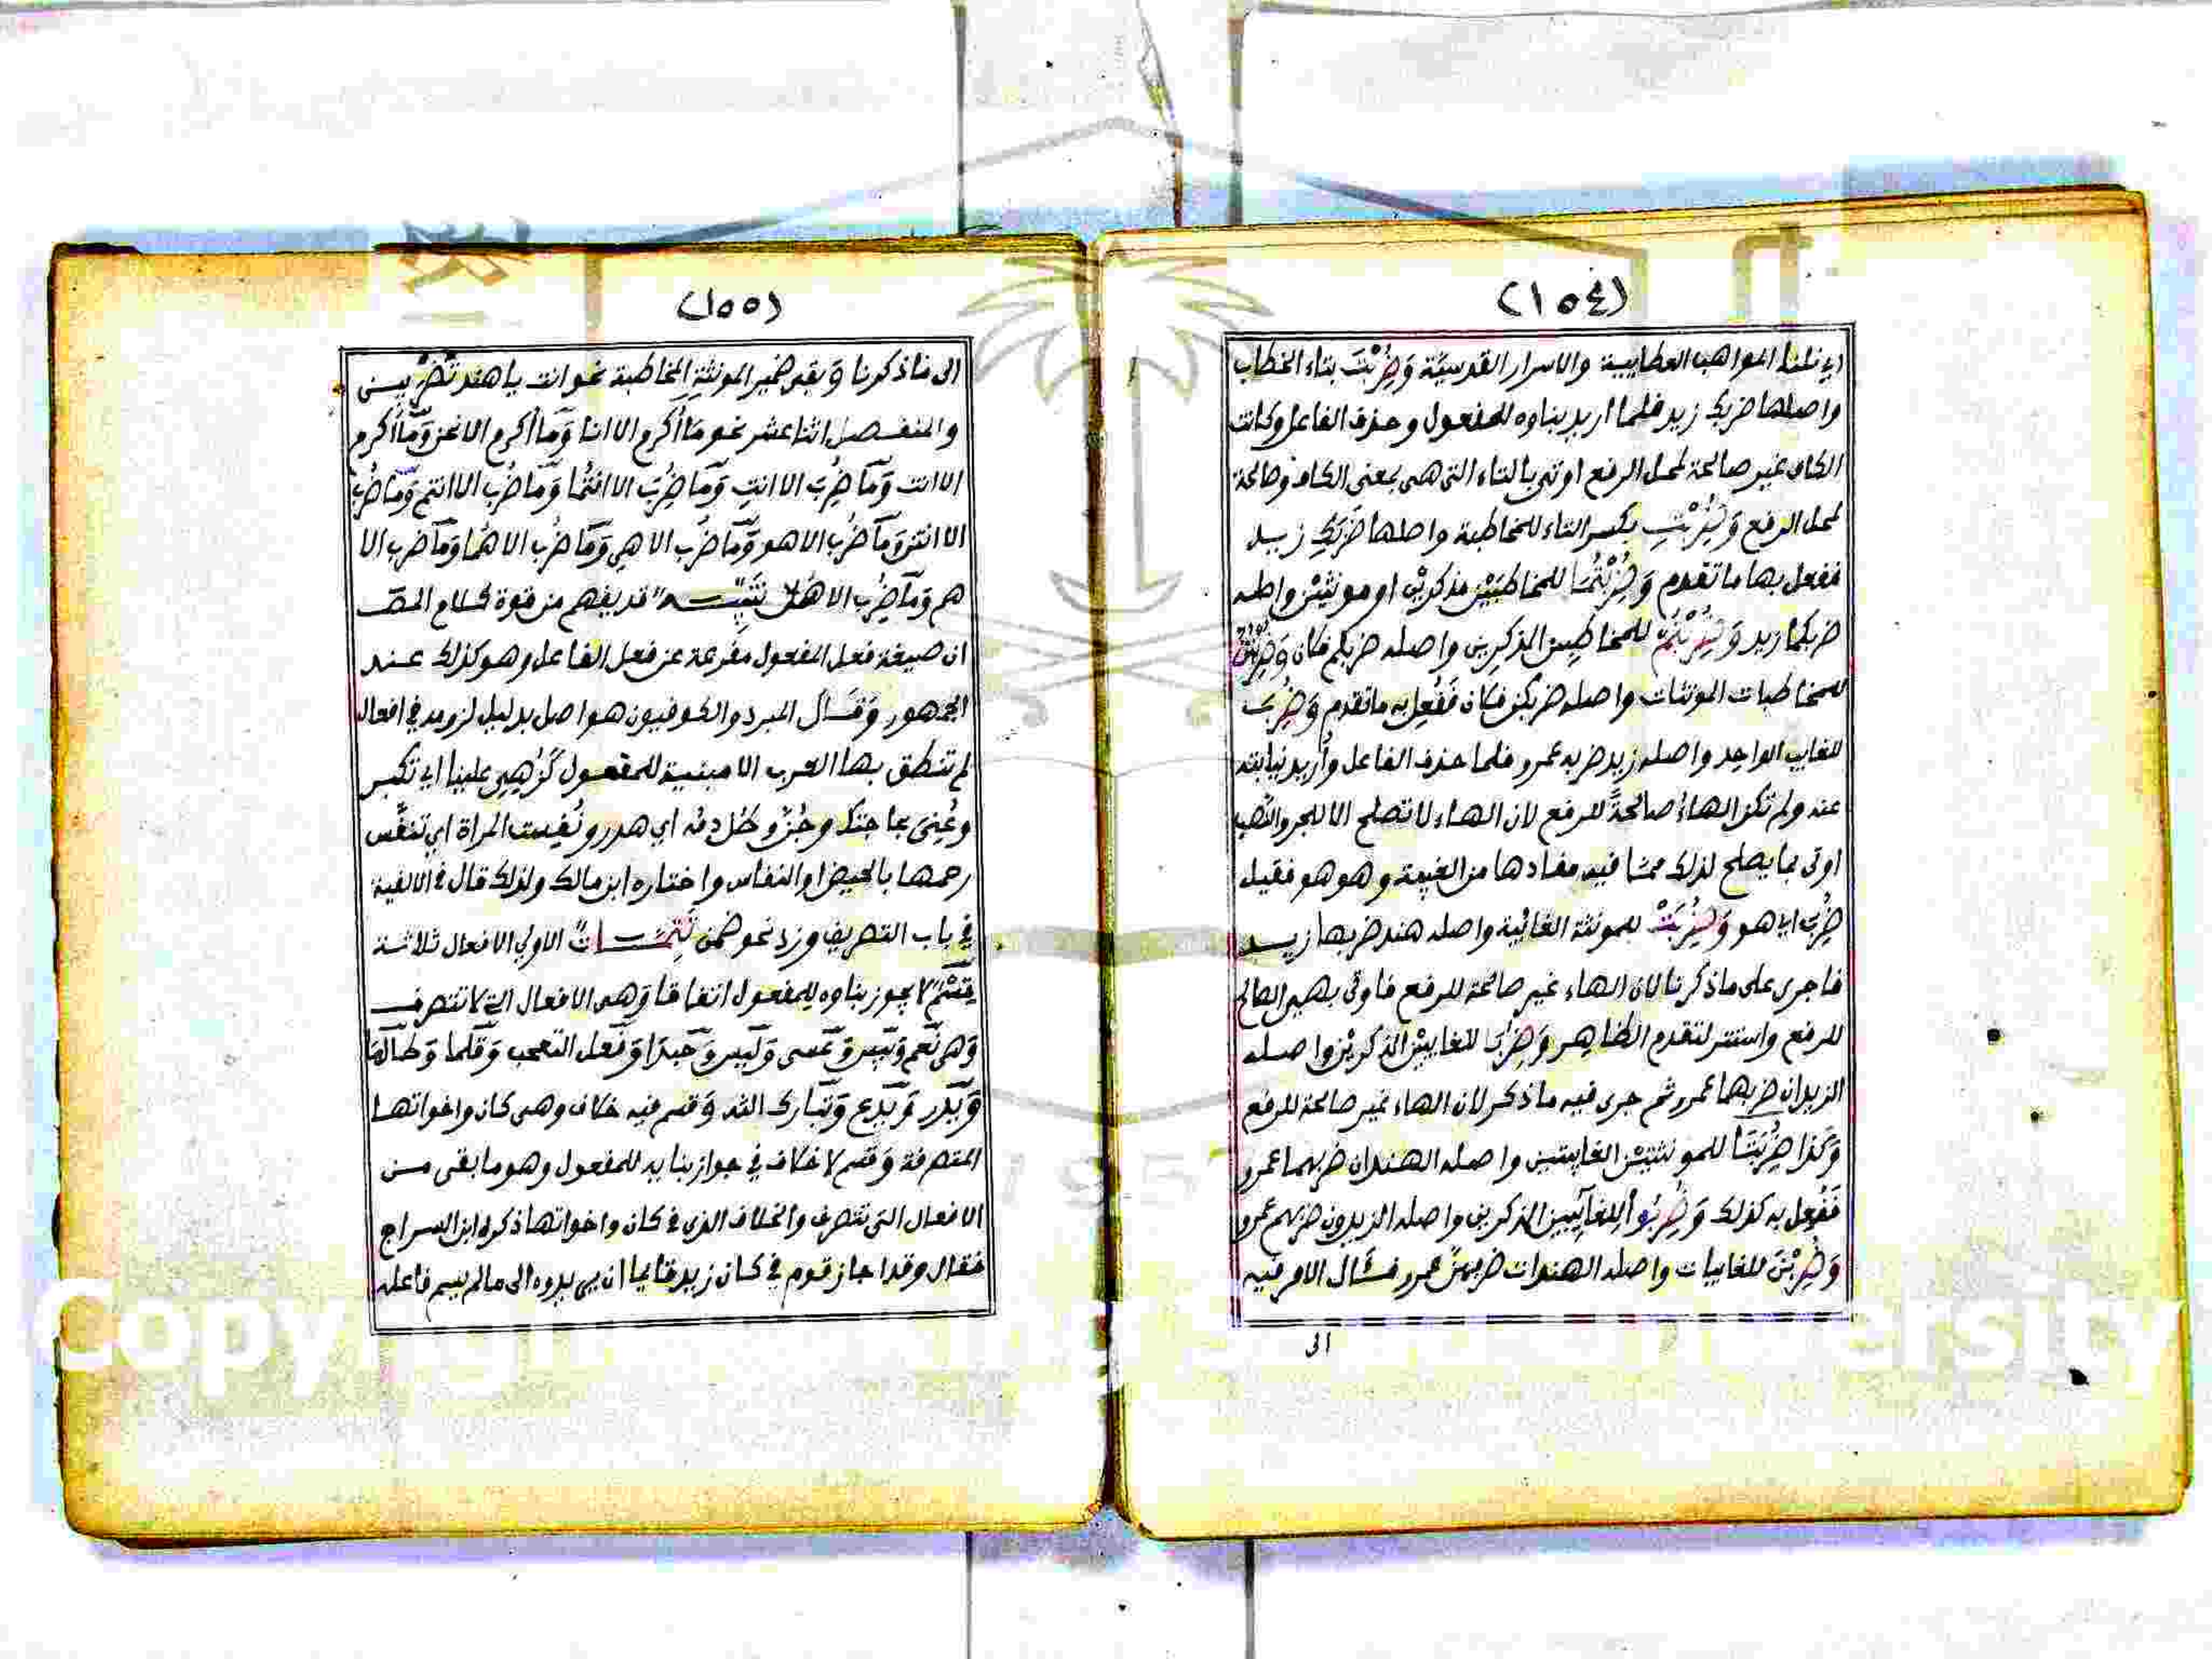 (١٥٤)
اي نلنا المواهب العطايية والاسرار القدسيَّة وَضُرِبْتَ بتاء الخطاب
واصلها ضربك زيد فلما اريد بناوه للمفعول وحذف الفاعل وكانت
الكاف غير صالحة لمحل الرفع اوتي بالتاء التي هي بمعنى الكاف وصالحة
لمحل الرفع وَضُرِبْتِ بكسر التاء للمخاطبة واصلها ضَرَبَكِ زيد
ففعل بها ما تقدم وَضُرِبْتُمَا للمخاطبَيْن مذكرين او مونثين واصله
ضربكما زيد وَضُرِبْتُمْ للمخاطبين الذكرين واصله ضربكم فكان وَضُرِبْتُنَّ
للمخاطبات المونثات واصله ضربكن فكان فَفُعِل به ما تقدم وَضُرِبَ
للغايب الواحد واصله زيد ضربه عمرو فلما حذف الفاعل وأريد نيابته
عنه ولم تكن الهاءُ صالحةً للرفع لان الهاء لا تصلح الا للجر والنصب
اوتى بما يصلح لذلك مما فيه مفادها من الغيبة وهو هو فقيل
ضُرِبَ اي هو وَضُرِبَتْ للمونثة الغائبة واصله هند ضربها زيد
فاجرى على ما ذكرنا لان الهاء غير صالحة للرفع فاوتى بهي الصالح
للرفع واستتر لتقدم الظاهر وَضُرِبَا للغايبَيْن الذكرين واصله
الزيدان ضربهما عمرو ثم جرى فيه ما ذكر لان الهاء غير صالحة للرفع
وَكذا ضُرِبَتَا للمونثتين الغايبتين واصله الهندان ضربهما عمرو
فَفُعِل به كذلك وَضُرِبُوا للغايبين الذكرين واصله الزيدون ضربهم عمرو
وَضُرِبْنَ للغايبات واصله الهندات ضربهن عمرو فسال الامر فيه
الى
(١٥٥)
الى ما ذكرنا وَبقى ضمير المونثةِ المخاطبة نحو انت يا هند تُضْرَبين
والمنفصل اثنا عشر نحو مَا أُكرم الا انا وَما أُكرم الا نحن وَمَا أُكرم
الا انت وَمَا ضُرِبَ الا انتِ وَمَا ضُرِبَ الا انتُما وَمَا ضُرِب الا انتم وَمَا ضُرِب
الا انتن وَمَا ضُرِب الا هو وَمَا ضُرِب الا هي وَمَا ضُرِب الا هُما وَمَا ضُرِب الا
هم وَمَا ضُرِب الا هُنَّ تنبيــه قد يفهم من قوة كلام المصَ
ان صيغة فعل المفعول مفرعة عن فعل الفاعل وهو كذلك عند
الجمهور وَقَال المبرد والكوفيون هو اصل بدليل لزومه في افعال
لم تنطق بها العرب الا مبنية للمفعول كَزُهِيَ علينا اي تكبر
وعُنِىَ بحاجتك وجُنَّ وطُلَّ دمُه اي هدر ونُفِست المراة اي تنفَّس
رحمها بالحيض او النفاس واختاره ابن مالك ولذلك قال في الالفية
في باب التصريف وزد نحو ضمن تَتِمَّــاتٌ الاولي الافعال ثلاثة
قِسْمٌ لا يجوز بناوه للمفعول اتفاقا وَهى الافعال التي لا تتصرف
وَهى نَعم وَبيس وَعَسى وَليس وَحبذا وَفعل التعجب وَقلما وَطالما
وَيَذر وَيَدع وَتَبارك الله وَقسم فيه خلاف وهى كان واخواتها
المتصرفة وَقسم لا خلاف في جواز بنايه للمفعول وهو ما بقى من
الافعال التى تتصرف والخلاف الذي في كان واخواتها ذكره ابن السراج
فقال وقد اجاز قوم في كان زيد قايما ان يردوه الى ما لم يسم فاعله